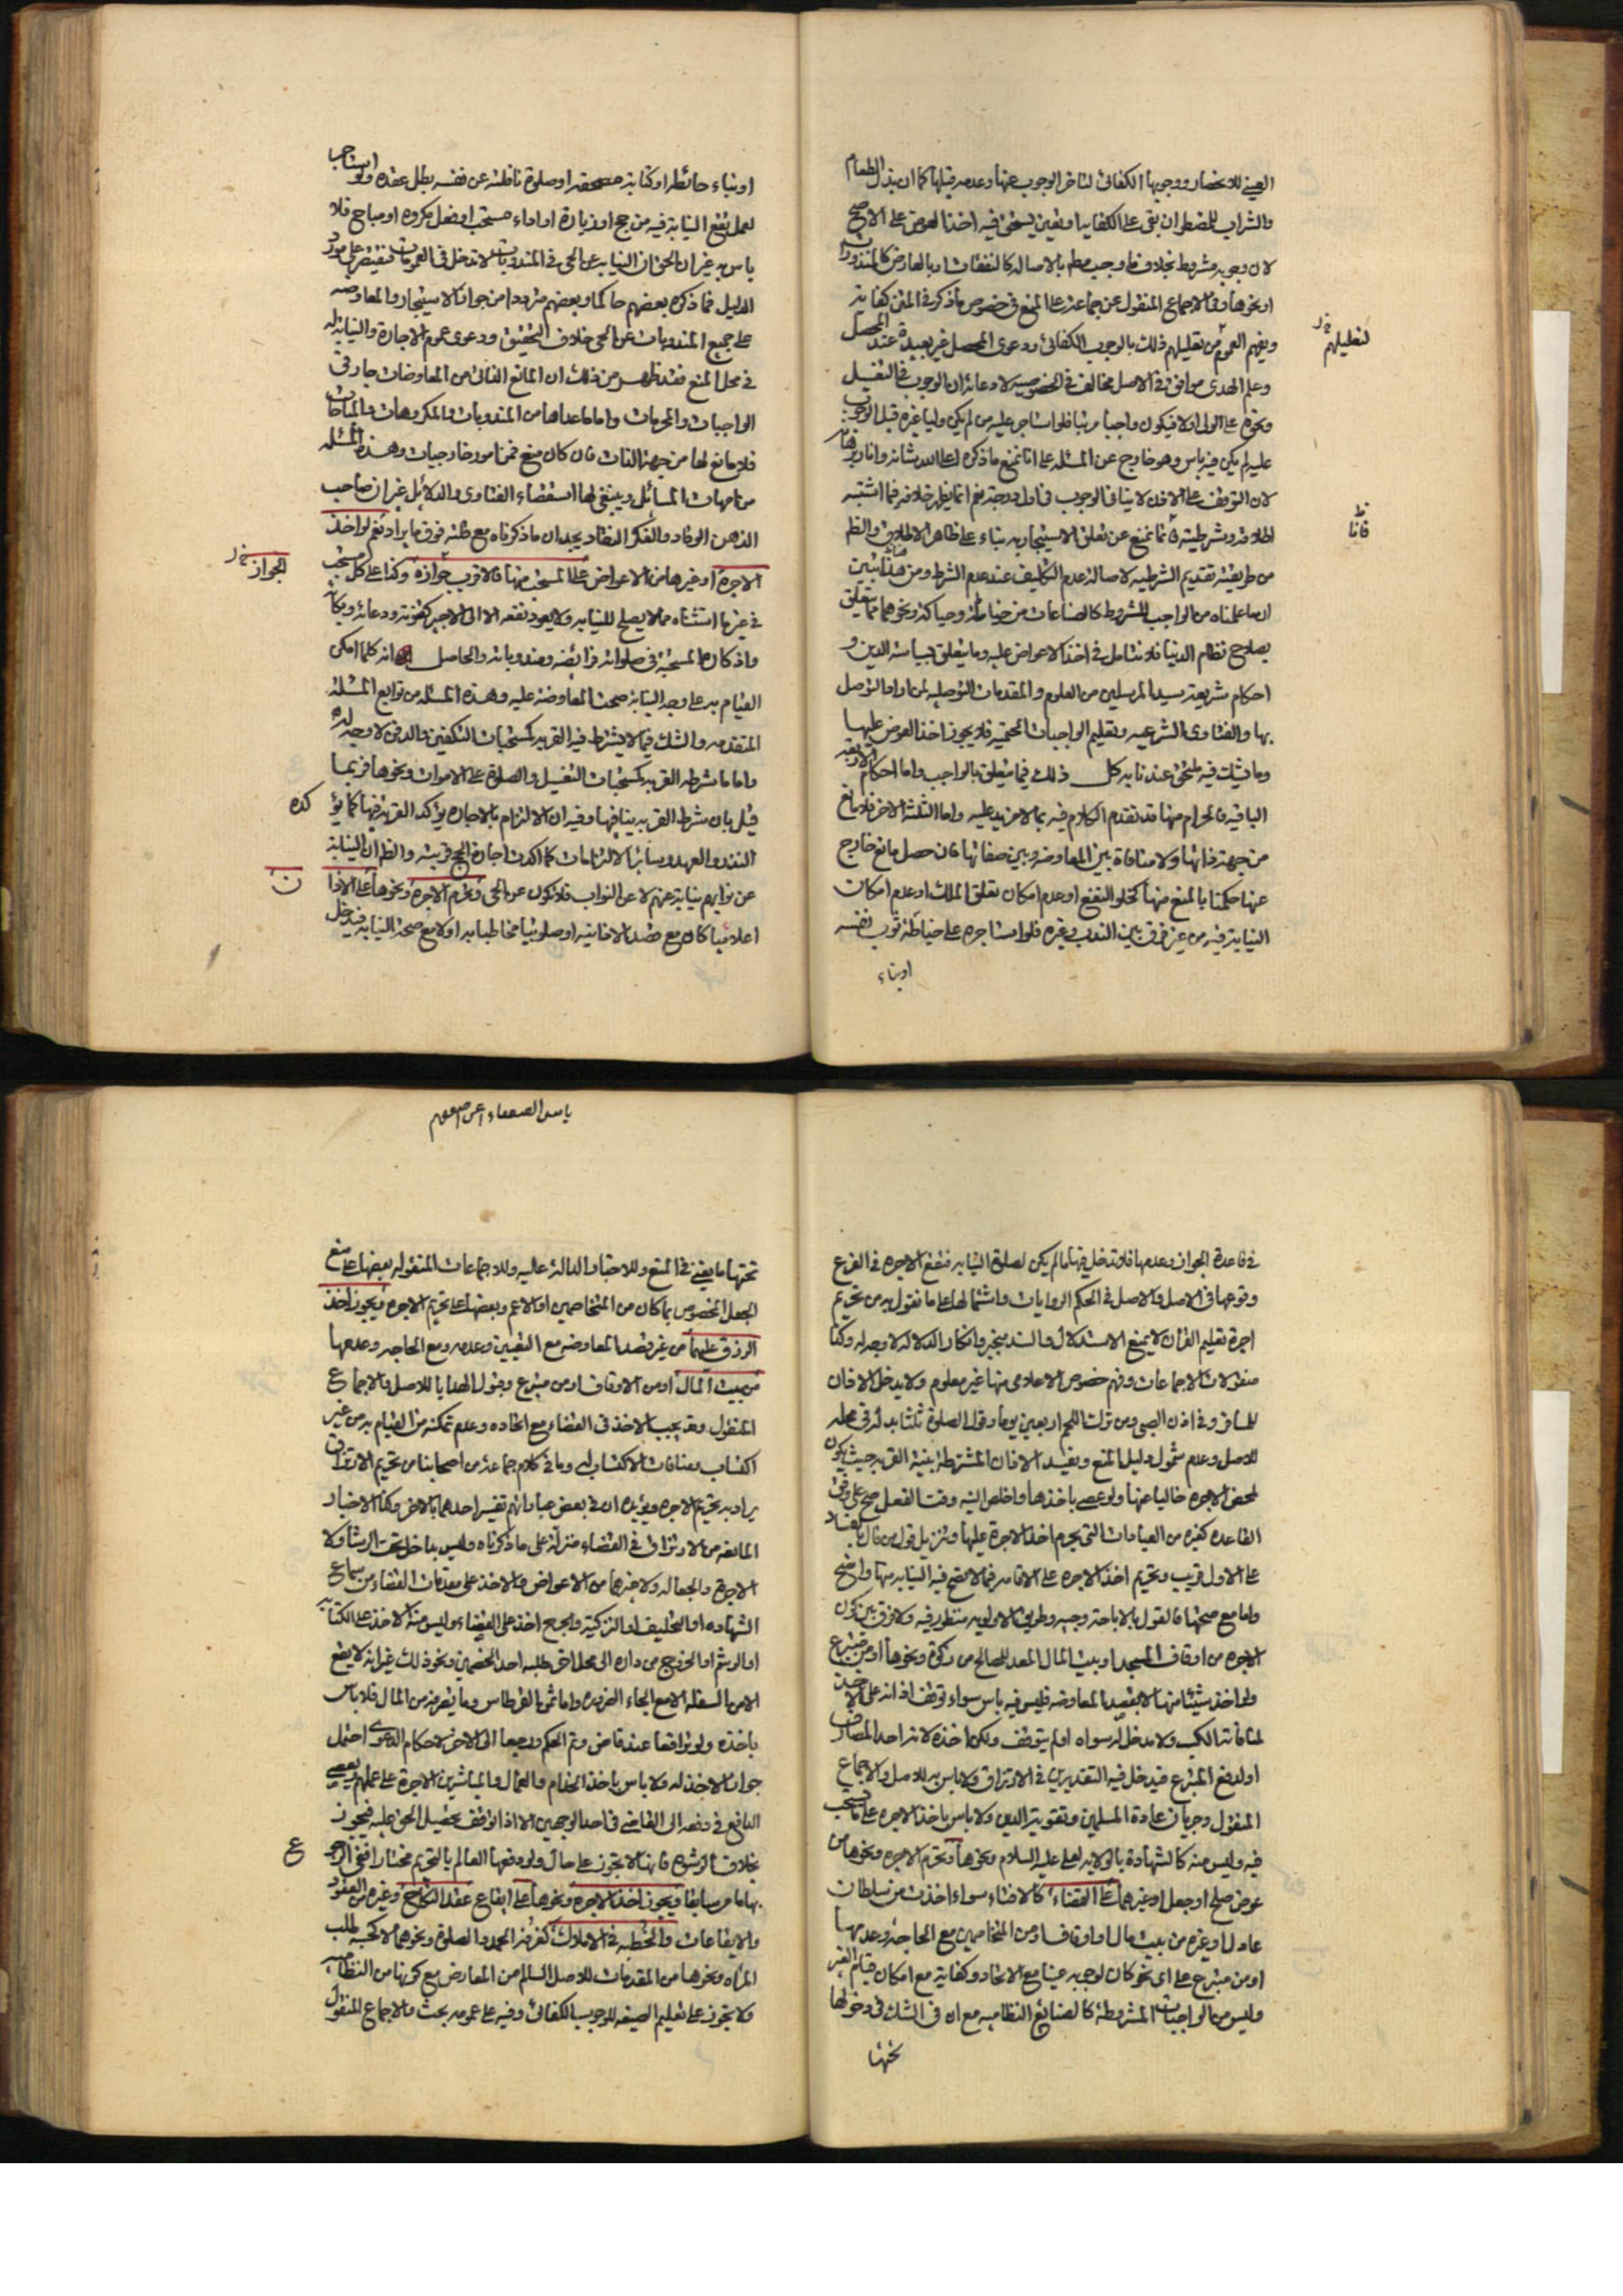 العيني للانحصار ووجوبها الكفائي لتاخر الوجوب عنها وعدمه قبلها كما ان بذل الطعام
والشراب للمضطر ان بقى على الكفاية او تعين يستحق فيه اخذ العوض على الاصح
لان وجوبه مشروط بخلاف ما وجب مطم بالاصاله كالنفقات او بالعارض كالمنذورات
او نحوها وفى الاجماع المنقول عن جماعة على المنع فى خصوص ما ذكر فى المتن كفاية
ويفهم العموم من تعليلهم ذلك بالوجوب الكفائي ودعوى المحصل غير بعيدة عند المحصل
لتعليلهم خ ر
وعلم الهدى موافق فى الاصل مخالف فى الخصوصيه لادعائه ان الوجوب فى التغسيل
ونحوه على الولى اولا فيكون واجبا مرتبا فلو استاجر عليه من لم يكن وليا غيره قبل الوجوب
عليه لم يكن فيه باس وهو خارج عن المسئله على انا نمنع ما ذكره اعلى الله شانه وانار برهانه
لان التوقف على الاذن لا ينافى الوجوب فى اول درجة نعم انما يظهر خلافه فيما اشتبه
اطلاقه وشرطيته فانما نمنع عن تعلق الاستيجار به بناء على ظاهر الاطلاق والظم
فانا ظ
من طريقته تقديم الشرطيه لاصالة عدم التكليف عند عدم الشرط ومن هنا تبين
ان ما علمناه من الواجب المشروط كالصناعات من خياطة وحياكة ونحوهما مما يتعلق
بصلاح نظام الدنيا فلا نتامل فى اخذ الاعواض عليه وما يتعلق بسياسة الدين و
احكام شريعة سيد المرسلين من العلوم والمقدمات التوصليه لمن اراد التوصل
بها والفتاوى الشرعيه وتعليم الواجبات الحتميه فلا يجوز اخذ العوض عليها
وما يشك فيه ملحق عندنا به كل ذلك فيما يتعلق بالواجب واما احكام الاربعة
الباقية فالحرام منها قد تقدم الكلام فيه بما لا مزيد عليه واما الثلثة الاخر فلا مانع
من جهة ذاتها ولا منافاة بين المعاوضه وبين صفاتها فان حصل مانع خارج
عنها حكمنا بالمنع منها كخلو النفع او عدم امكان تعلق الملك او عدم امكان
النيابة فيه من غير فرق بين الندب وغيره فلو استاجره على خياطة ثوب نفسه
او بناء
او بناء حائطه او كتابة مصحفه او صلوة نافلته عن نفسه بطل عقده ولو استاجره
لعمل تقع النيابة فيه من حج او زيارة او اداء مستحب او فعل مكروه او مباح فلا
باس به غير ان الحق ان النيابه عن الحى فى المندوبات لا تدخل فى العمومات فنقتصر على مورد
الدليل فما ذكره بعضهم حاكما وبعضهم مترددا من جواز الاستيجار والمعاوضه
على جميع المندوبات عن الحى خلاف التحقيق ودعوى عموم الاجارة والنيابة له
فى محل المنع فقد ظهر من ذلك ان المانع الذاتى من المعاوضات جار فى
الواجبات والمحرمات واما ما عداها من المندوبات والمكروهات والمباحات
فلا مانع لها من جهة الذات فان كان منع فمن امور خارجيات وهذه المسئله
من امهات المسائل وينبغى لها استقصاء الفتاوى والدلائل غير ان صاحب
الذهن الوقاد والفكر النقاد يجد ان ما ذكرناه مع قلته فوق ما يراد نعم لو اخذ
الاجرة او غيرها من الاعواض على المستحب منها فالاقرب جوازه وكذا على كل مستحب
الجواز خ ر
فى غيرها استثناه مما لا يصلح للنيابه ولا يعود نفعه الا الى الاجير كقنوته ودعائه وبكائه
واذكاره المستحبة فى صلواته فرائضه ومندوباته والحاصل انه كلما امكن
القيام به على وجه النيابة صحت المعاوضة عليه وهذه المسئله من توابع المسئلة
المتقدمه والشك فيما لا يشترط فيه القربه كمستحبات التكفين والدفن لا وجه له
واما ما شرطه القربه كمستحبات التغسيل والصلوة على الاموات ونحوها فربما
قيل بان شرط القربه ينافيها وفيه ان الالتزام بالاجاره يؤكد القربة فيها كما يؤ
كده
النذر والعهد وسائر الالتزامات كما اكدت اجارة الحج قربته والظم ان النيابة
عن نوابهم نيابة عنهم لا عن النواب فلا تكون عن الحى وتحرم الاجرة ونحوها على الاذا
ن
اعلاميا كان مع قصد الاذانيه او صلوتيا مخاطبا به اولا مع صحة النيابه فيدخل
فى قاعدة الجواز وعدمها فلا تدخل فيها ما لم يكن لصلوة النيابه فتقع الاجره فى الفرع
وقوعها فى الاصل والاصل فى الحكم الروايات واشتمالها على ما نقول به من تحريم
اجرة تعليم القران لا يمنع الاستدلال والسند منجبر وانكار الدلاله لا وجه له وكذا
منقولات الاجماعات وفهم خصوص الاعلامى منها غير معلوم ولا يدخل الاذان
للمسافر وفى اذن الصبى ومن ترك اللحم اربعين يوما وقول الصلوة ثلثا بدله فى محله
للاصل وعدم شمول دليل المنع ويفسد الاذان المشترطة بنية القربه حيث يكون
لمحض الاجره خاليا عنها ولو عصى باخذها واخلص النيه وقت الفعل صح على وفق
القاعده كغيره من العبادات التى يحرم اخذ الاجرة عليها وتنزيل قول من قال بالفساد
على الاول قريب وتحريم اخذ الاجره على الاقامه فيما لا تصح فيه النيابه منها واضح
واما مع صحتها فالقول بالاباحة وجيه وطريق الاولويه منظور فيه ولا فرق بين كون
الاجره من اوقاف المسجد او بيت المال المعد للمصالح من زكوة ونحوها او من متبرع
ولو اخذ شيئا منها لا بقصد المعاوضه فليس فيه باس سواء توقف اذانه على الاخذ
لمنافاته الكسب ولا مدخل له سواه او لم يتوقف ولكن اخذه لانه احد المصارف
او لدفع المتبرع فيدخل فيه التقديرين فى الارتزاق ولا باس به للاصل والاجماع
المنقول وجريان عادة المسلمين وتقوية الدين ولا باس باخذ الاجره على ما يستحب
فيه وليس منه كالشهادة بالولايه لعلى عليه السلام ونحوها وتحرم الاجره ونحوها من
عوض صلح او جعل او غيرهما على القضاء كالافتاء سواء اخذت من سلطان
عادل او غيره من بيت مال او اوقاف او من المتخاصمين مع الحاجة وعدمها
او من متبرع على اى نحو كان لوجوبه عينا مع الاتحاد وكفاية مع امكان قيام الغير
وليس من الواجبات المشروطة كالصنائع النظاميه مع ان فى الشك فى دخولها
تحتها
باسد الضعفاء
تحتها ما يغنى فى المنع وللاخبار الدالة عليه وللاجماعات المنقوله بعضها على منع
الجعل المخصوص بما كان من المتخاصمين او الاعم وبعضها على تحريم الاجره ويجوز اخذ
الرزق عليهما من غير قصد المعاوضه مع التعيين وعدمه ومع الحاجه وعدمها
من بيت المال او من الاوقاف او من متبرع وقبول الهدايا للاصل والاجماع
المنقول وقد يجب الاخذ فى القضاء مع اتحاده وعدم تمكنه من القيام به من غير
اكتساب ومنافاة الاكتساب له وما فى كلام جماعة من اصحابنا من تحريم الارتزاق
يراد به تحريم الاجره ويؤيده ان فى بعض عباداتهم تفسير احدهما بالاخر وكذا الاخبار
المانعه من الارتزاق فى القضاء منزلة على ما ذكرناه وليس بداخل تحت الرشا ولا
الاجرة والجعاله ولا غيرهما من الاعواض والاخذ على مقدمات القضاء من سماع
الشهاده او التحليف او التزكية والجرح اخذ على القضاء وليس منه الاخذ على الكتابه
او الرسم او الخروج من داره الى محل اخر طلبه احد الخصمين ونحو ذلك غير انه لا يقع
الا من السفله الا مع الجاء الضروره واما ثمن القرطاس وما يغرمه من المال فلا باس
باخذه ولو ترافعا عند قاض وتم الحكم ورجعا الى الاخر لاحكام الدعوى احتمل
جواز الاخذ له ولا باس باخذ الخدام والعمال والمباشرين الاجرة على عملهم ويعصى
الدافع فى دفعه الى القاضى فى احد الوجهين الا اذا توقف تحصيل الحق عليه فيجوز
بخلاف الرشوه فانها لا تجوز على حال ولو دفعها العالم بالتحريم مختارا ففى الرجو
ع
بها ما مر سابقا ويجوز اخذ الاجره ونحوها على ايقاع عقد النكاح وغيره من العقود
والايقاعات والخطبه فى الاملاك كغرفه الحمد والصلوة ونحوهما لا كخبه طلب
المراه ونحوها من المقدمات للاصل السالم من المعارض مع كونها من النظاميه
ولا تجوز على تعليم الصيغه للوجوب الكفائي وفيه على عمومه بحث والاجماع المنقول